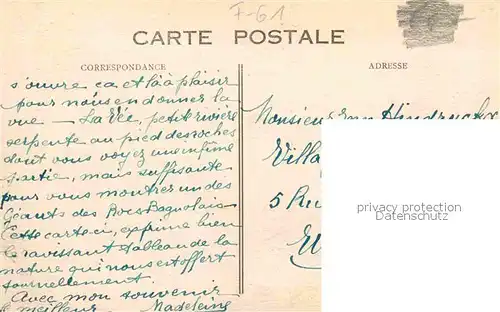 F-61
CARTE POSTALE
CORRESPONDANCE
ADRESSE
s'ouvre ça et là à plaisir
pour nous en donner la
vue — La Vée, petite rivière
serpente au pied des roches
dont vous voyez une infime
partie, mais suffisante
pour vous montrer un des
géants des Rocs Bagnolais
Cette carte-ci, exprime bien
le ravissant tableau de la
nature qui nous est offert
journellement.
Avec mon souvenir
le meilleur Madeleine
Monsieur
Villa
5 Ru
privacy protection
Datenschutz